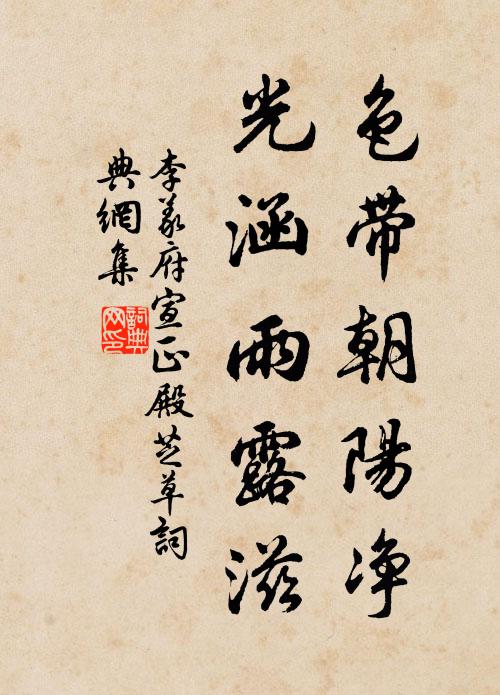 色帶朝陽净
光涵雨露滋
李义府宣正殿芝草詞
典網集
詞典网印